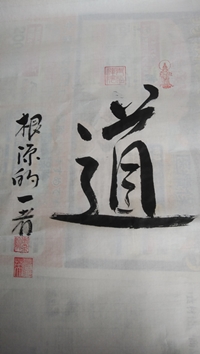 道
根源的一者